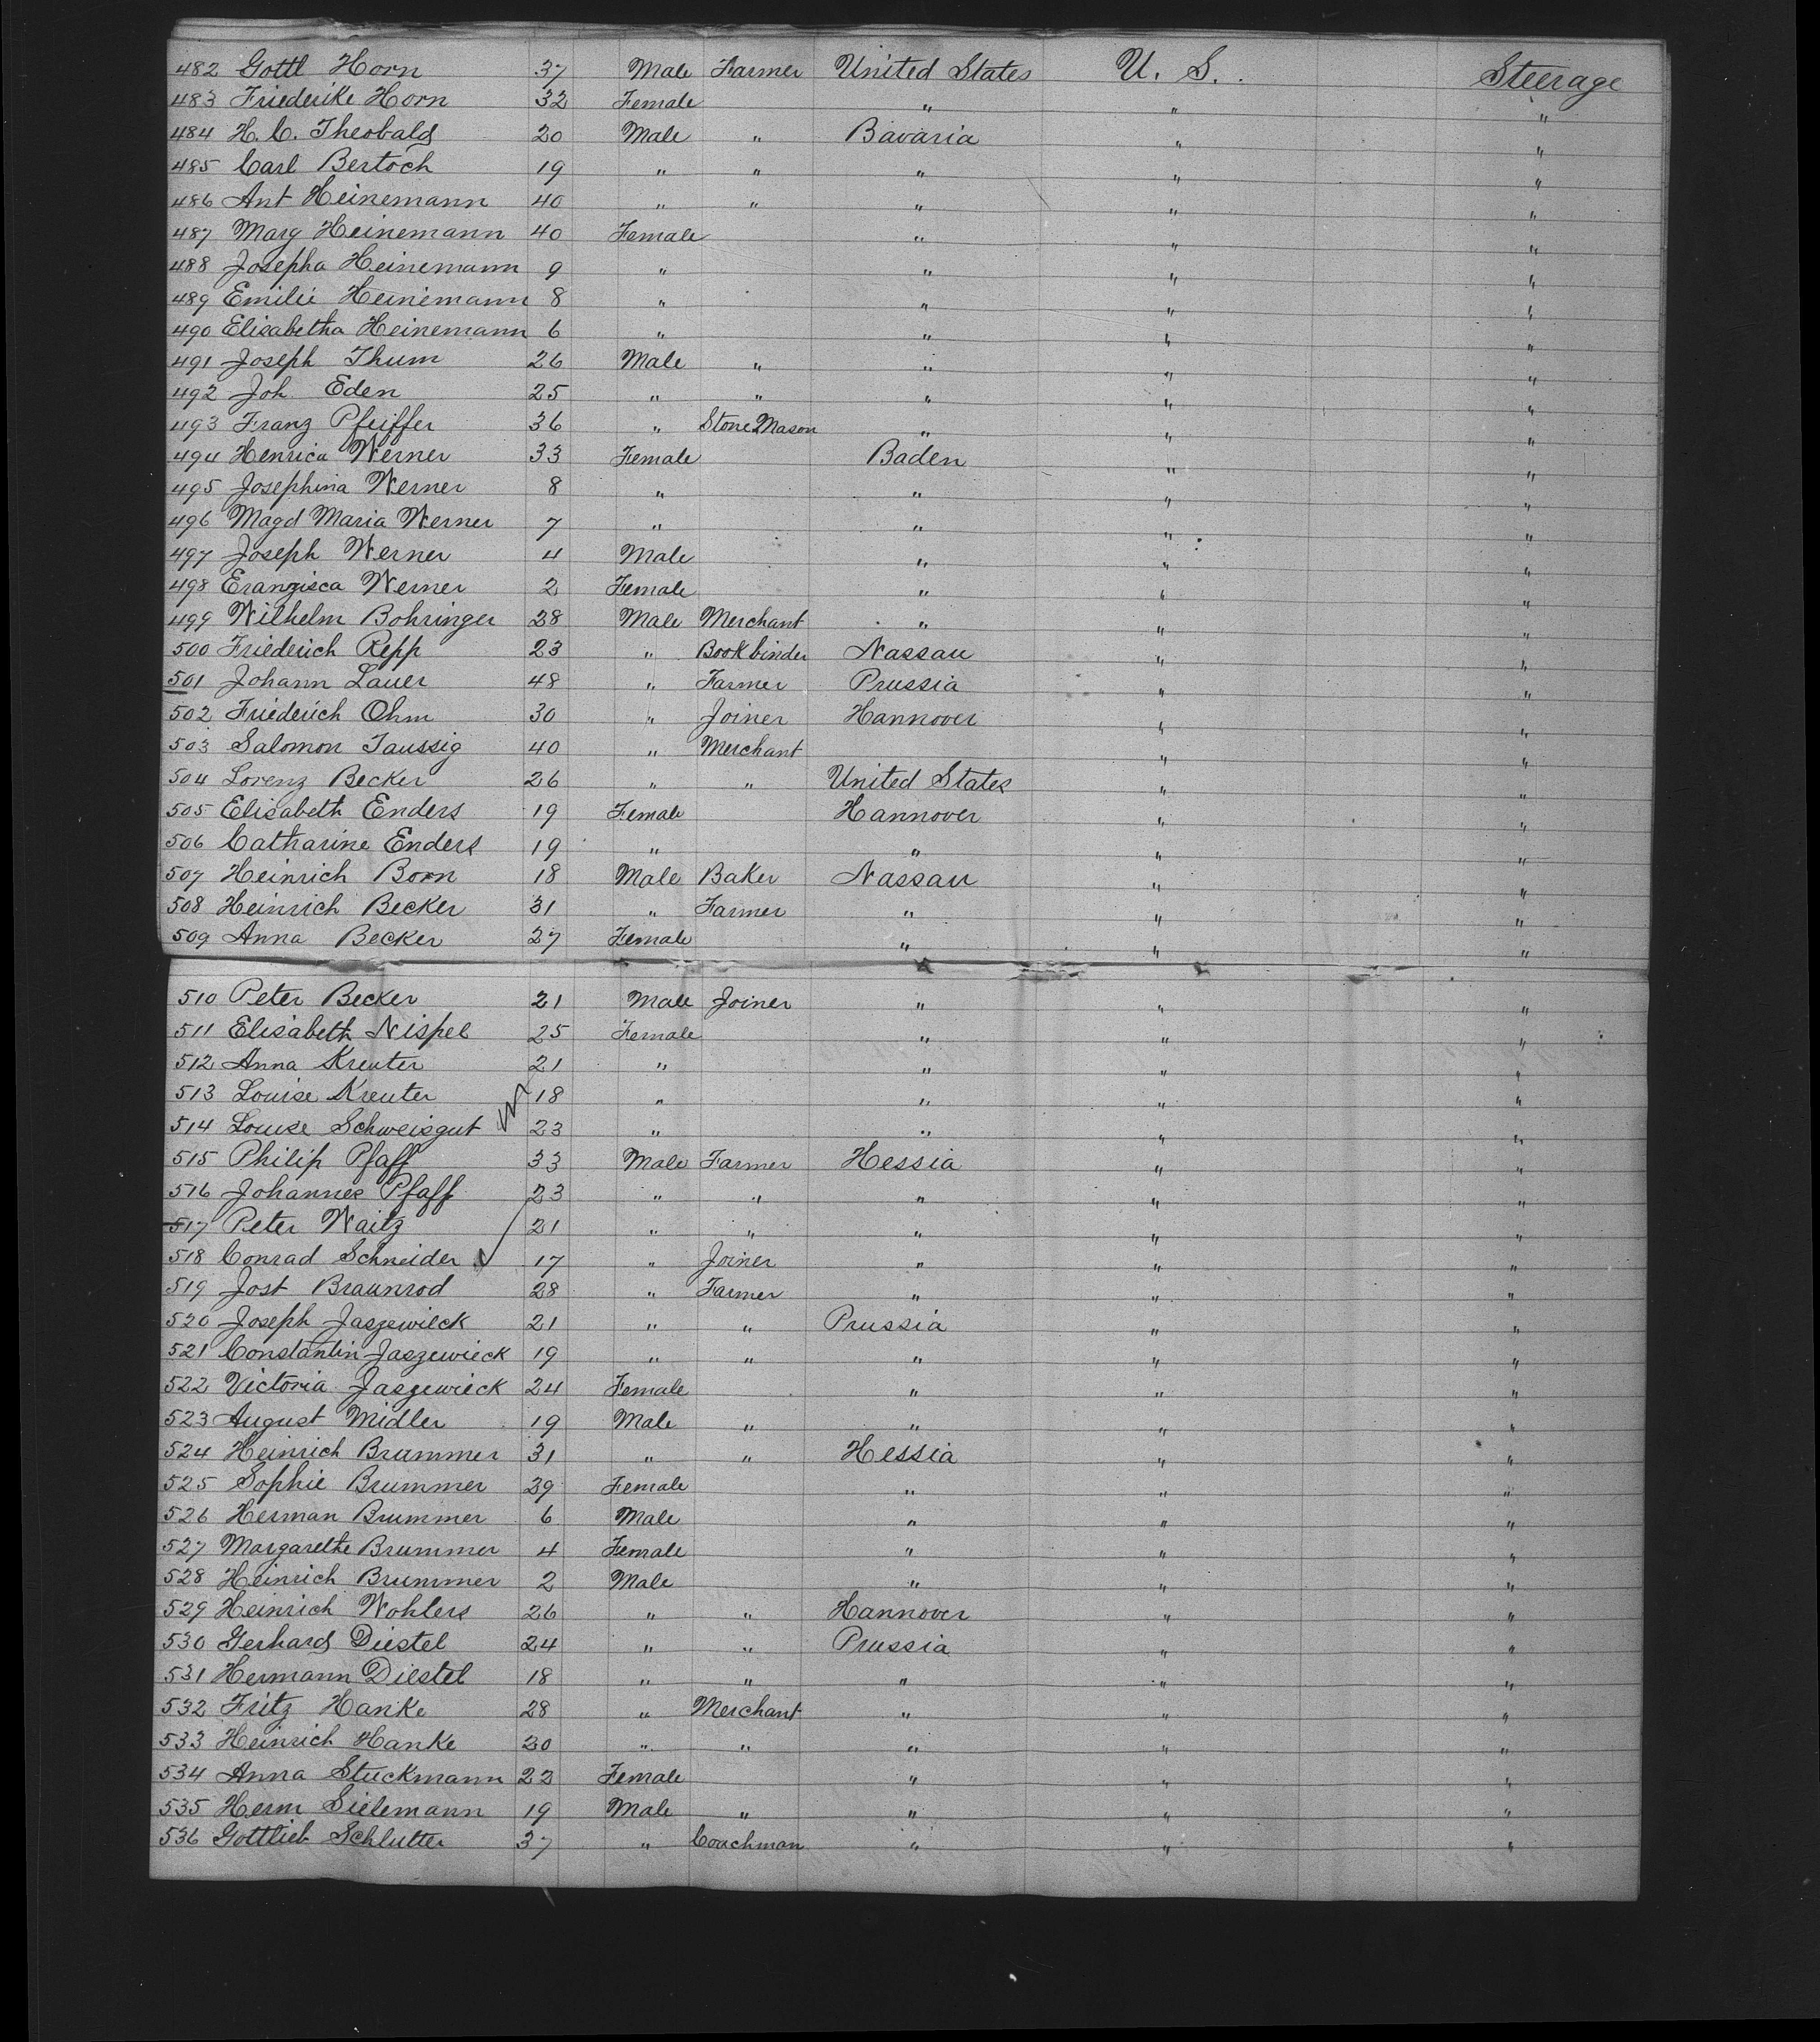 482 Gottl Horn 37 Male Farmer United States U. S. Steerage
483 Friederike Horn 32 Female " " "
484 H. C. Theobald 20 Male " Bavaria " "
485 Carl Bertoch 19 " " " " "
486 Ant Heinemann 40 " " " " "
487 Marg Heinemann 40 Female " " "
488 Josepha Heinemann 9 " " " "
489 Emilie Heinemann 8 " " " "
490 Elisabetha Heinemann 6 " " " "
491 Joseph Thum 26 Male " " " "
492 Joh. Eden 25 " " " " "
493 Franz Pfeiffer 36 " Stone Mason " " "
494 Henrica Werner 33 Female Baden " "
495 Josephina Werner 8 " " " "
496 Magd Maria Werner 7 " " " "
497 Joseph Werner 4 Male " " "
498 Franzisca Werner 2 Female " " "
499 Wilhelm Bohringer 28 Male Merchant " " "
500 Friederich Repp 23 " Bookbinder Nassau " "
501 Johann Lauer 48 " Farmer Prussia " "
502 Friederich Ohm 30 " Joiner Hannover " "
503 Salomon Taussig 40 " Merchant " "
504 Lorenz Becker 26 " " United States " "
505 Elisabeth Enders 19 Female Hannover " "
506 Catharine Enders 19 " " " "
507 Heinrich Born 18 Male Baker Nassau " "
508 Heinrich Becker 31 " Farmer " " "
509 Anna Becker 27 Female " " "
510 Peter Becker 21 Male Joiner " " "
511 Elisabeth Nispel 25 Female " " "
512 Anna Kreuter 21 " " " "
513 Louise Kreuter 18 " " " "
514 Louise Schweisgut 23 " " " "
515 Philip Pfaff 33 Male Farmer Hessia " "
516 Johannes Pfaff 23 " " " " "
517 Peter Waitz 21 " " " " "
518 Conrad Schneider 17 " Joiner " " "
519 Jost Braunrod 28 " Farmer " " "
520 Joseph Jaszewieck 21 " " Prussia " "
521 Constantin Jaszewieck 19 " " " " "
522 Victoria Jaszewieck 24 Female " " "
523 August Midler 19 Male " " " "
524 Heinrich Brummer 31 " " Hessia " "
525 Sophie Brummer 39 Female " " "
526 Herman Brummer 6 Male " " "
527 Margarethe Brummer 4 Female " " "
528 Heinrich Brummer 2 Male " " "
529 Heinrich Wohlers 26 " " Hannover " "
530 Gerhard Diestel 24 " " Prussia " "
531 Hermann Diestel 18 " " " " "
532 Fritz Hanke 28 " Merchant " " "
533 Heinrich Hanke 20 " " " " "
534 Anna Stuckmann 22 Female " " "
535 Herm Sielemann 19 Male " " " "
536 Gottlieb Schlutter 37 " Coachman " " "